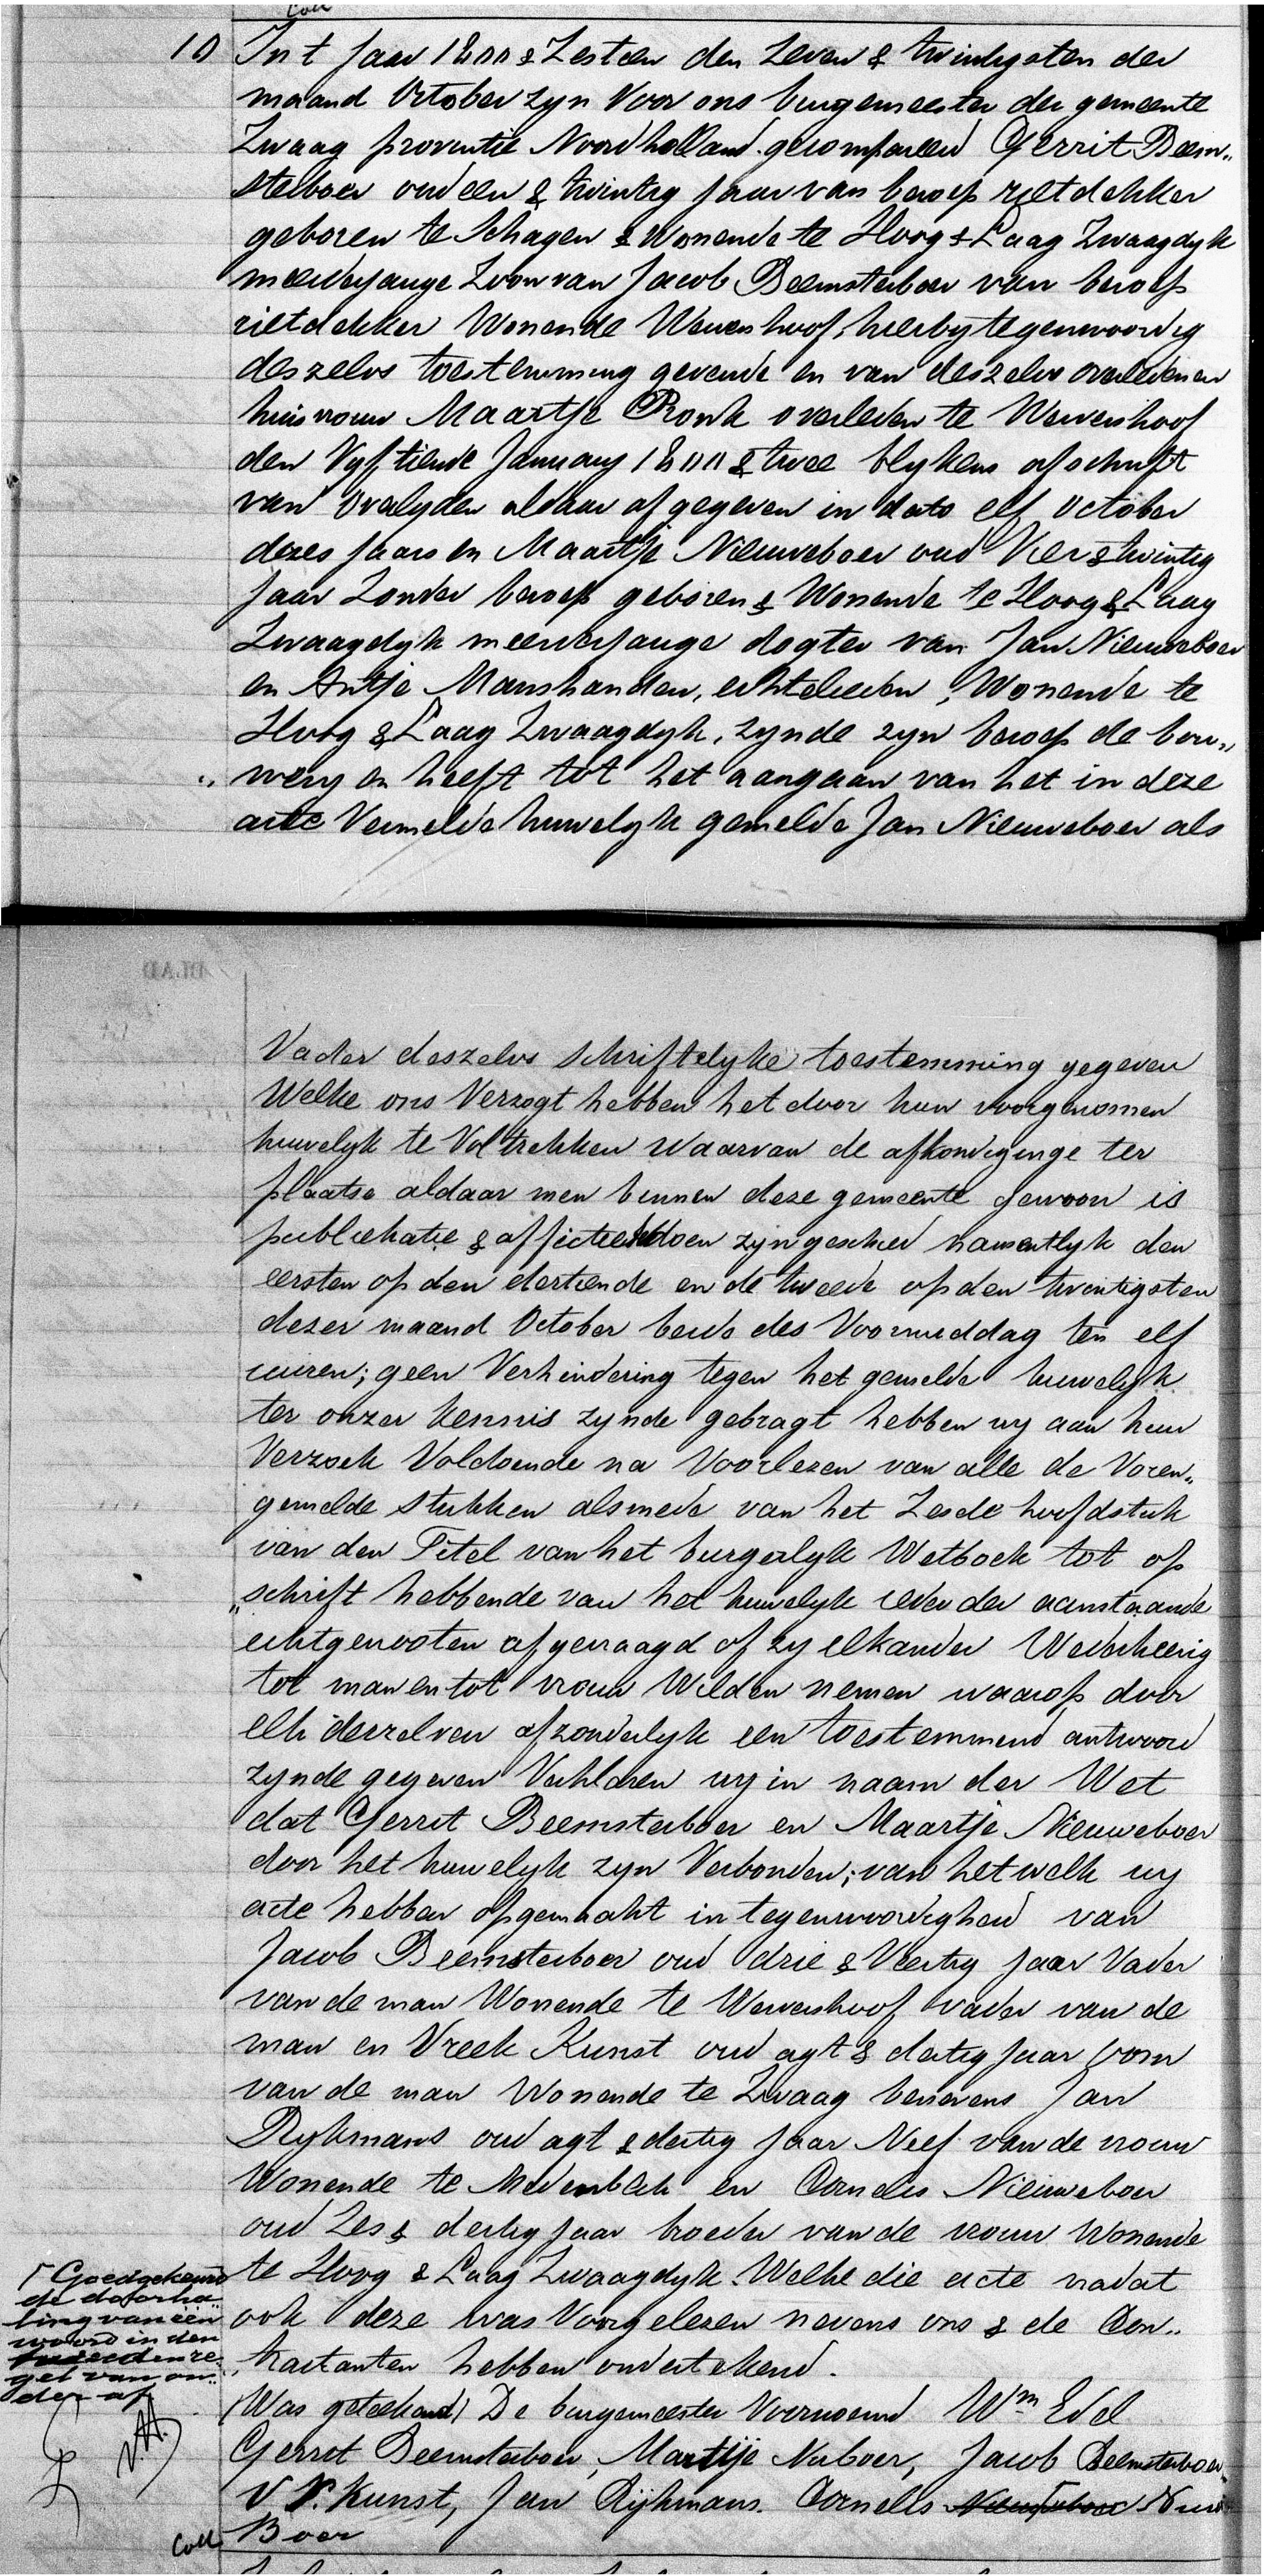 Coll
10 In t Jaar 1800 & Zestien den Zeven & twintigsten der
maand October zyn Voor ons burgemeester der gemeente
Zwaag proventie Noordholland gecompareerd Gerrit Beem„
sterboer oud een & twintig Jaar van beroep rietdekker
geboren te Schagen & Wonende te Hoog & Laag Zwaagdyk
meerderjange Zoon van Jacob Beemsterboer van beroep
rietdekker Wonende Wervershoof, hierby tegenwoordig
deszelvs toestemming gevende en van deszelvs overledenen
huisvrouw Maartje Ronk overleden te Wervershoof
den Vyftiende January 1800 & twee blykens afschrift
van Overlyden aldaar afgegeven in dato elf October
dezes Jaars en Maartje Nieuweboer oud Vier & twintig
Jaar Zonder beroep geboren & Wonende te Hoog & Laag
Zwaagdyk meerderjange dogter van Jan Nieuweboer
en Antje Manshanden, echtelieden, Wonende te
Hoog & Laag Zwaagdyk, zynde zyn beroep de bou„
„wery en heeft tot het aangaan van het in deze
acte Vermelde huwelyk gemelde Jan Nieuweboer als
Vader deszelvs schriftelyke toestemming gegeven
Welke ons Verzogt hebben het door hun voorgenomen
huwelyk te Voltrekken Waarvan de afkondiginge ter
plaatse aldaar men binnen deze gemeente gewoon is
publicatie & affictie te doen zyn geschied namentlyk den
eersten op den dertiende en de tweede op den twentigsten
dezer maand October beids des Voormiddag ten elf
uuren; geen Verhindering tegen het gemelde huwelyk
ter onzer kennis zynde gebragt hebben wy aan hun
Verzoek Voldoende na Voorlezen van alle de Voren„
gemelde stukken alsmede van het Zesde hoofdstuk
van den Titel van het burgerlyk Wetboek tot op
„schrift hebbende van het huwelyk ieder der aanstaande
echtgenooten afgevraagd of zy elkander Wederkeerig
tot man en tot vrouw Wilden nemen waarop door
elk derzelven afzonderlyk een toestemmend antwoord
zynde gegeven Verklaren wy in naam der Wet
dat Gerret Beemsterboer en Maartje Nieuweboer
door het huwelyk zyn Verbonden; van het welk wy
acte hebben opgemaakt in tegenwoordigheid van
Jacob Beemsterboer oud drie & Veertig Jaar Vader
van de man Wonende te Wervershoof vader van de
man en Vreek Kunst oud agt & dertig Jaar oom
van de man Wonende te Zwaag benevens Jan
Rykmans oud agt & dertig Jaar Neef van de vrouw
Wonende te Medenblik en Cornelis Nieuweboer
oud Zes & dertig Jaar broeder van de vrouw Wonende
te Hoog & Laag Zwaagdyk. Welke die acte nadat
ook deze was Voorgelezen nevens ons & de Con„
„tractanten hebben ondertekend.
(Was geteekend) De burgemeester Voornoemd Wm Edel
Gerret Beemsterboer, Maartije Nuboer, Jacob Beemsterboer,
V P. Kunst, Jan Rijkmans. Cornelis Nieuweboer Nuw
Boer
Goedgekeurd
de doorha„
ling van één
woord in den
tweeden re„
gel van on„
der af
Coll